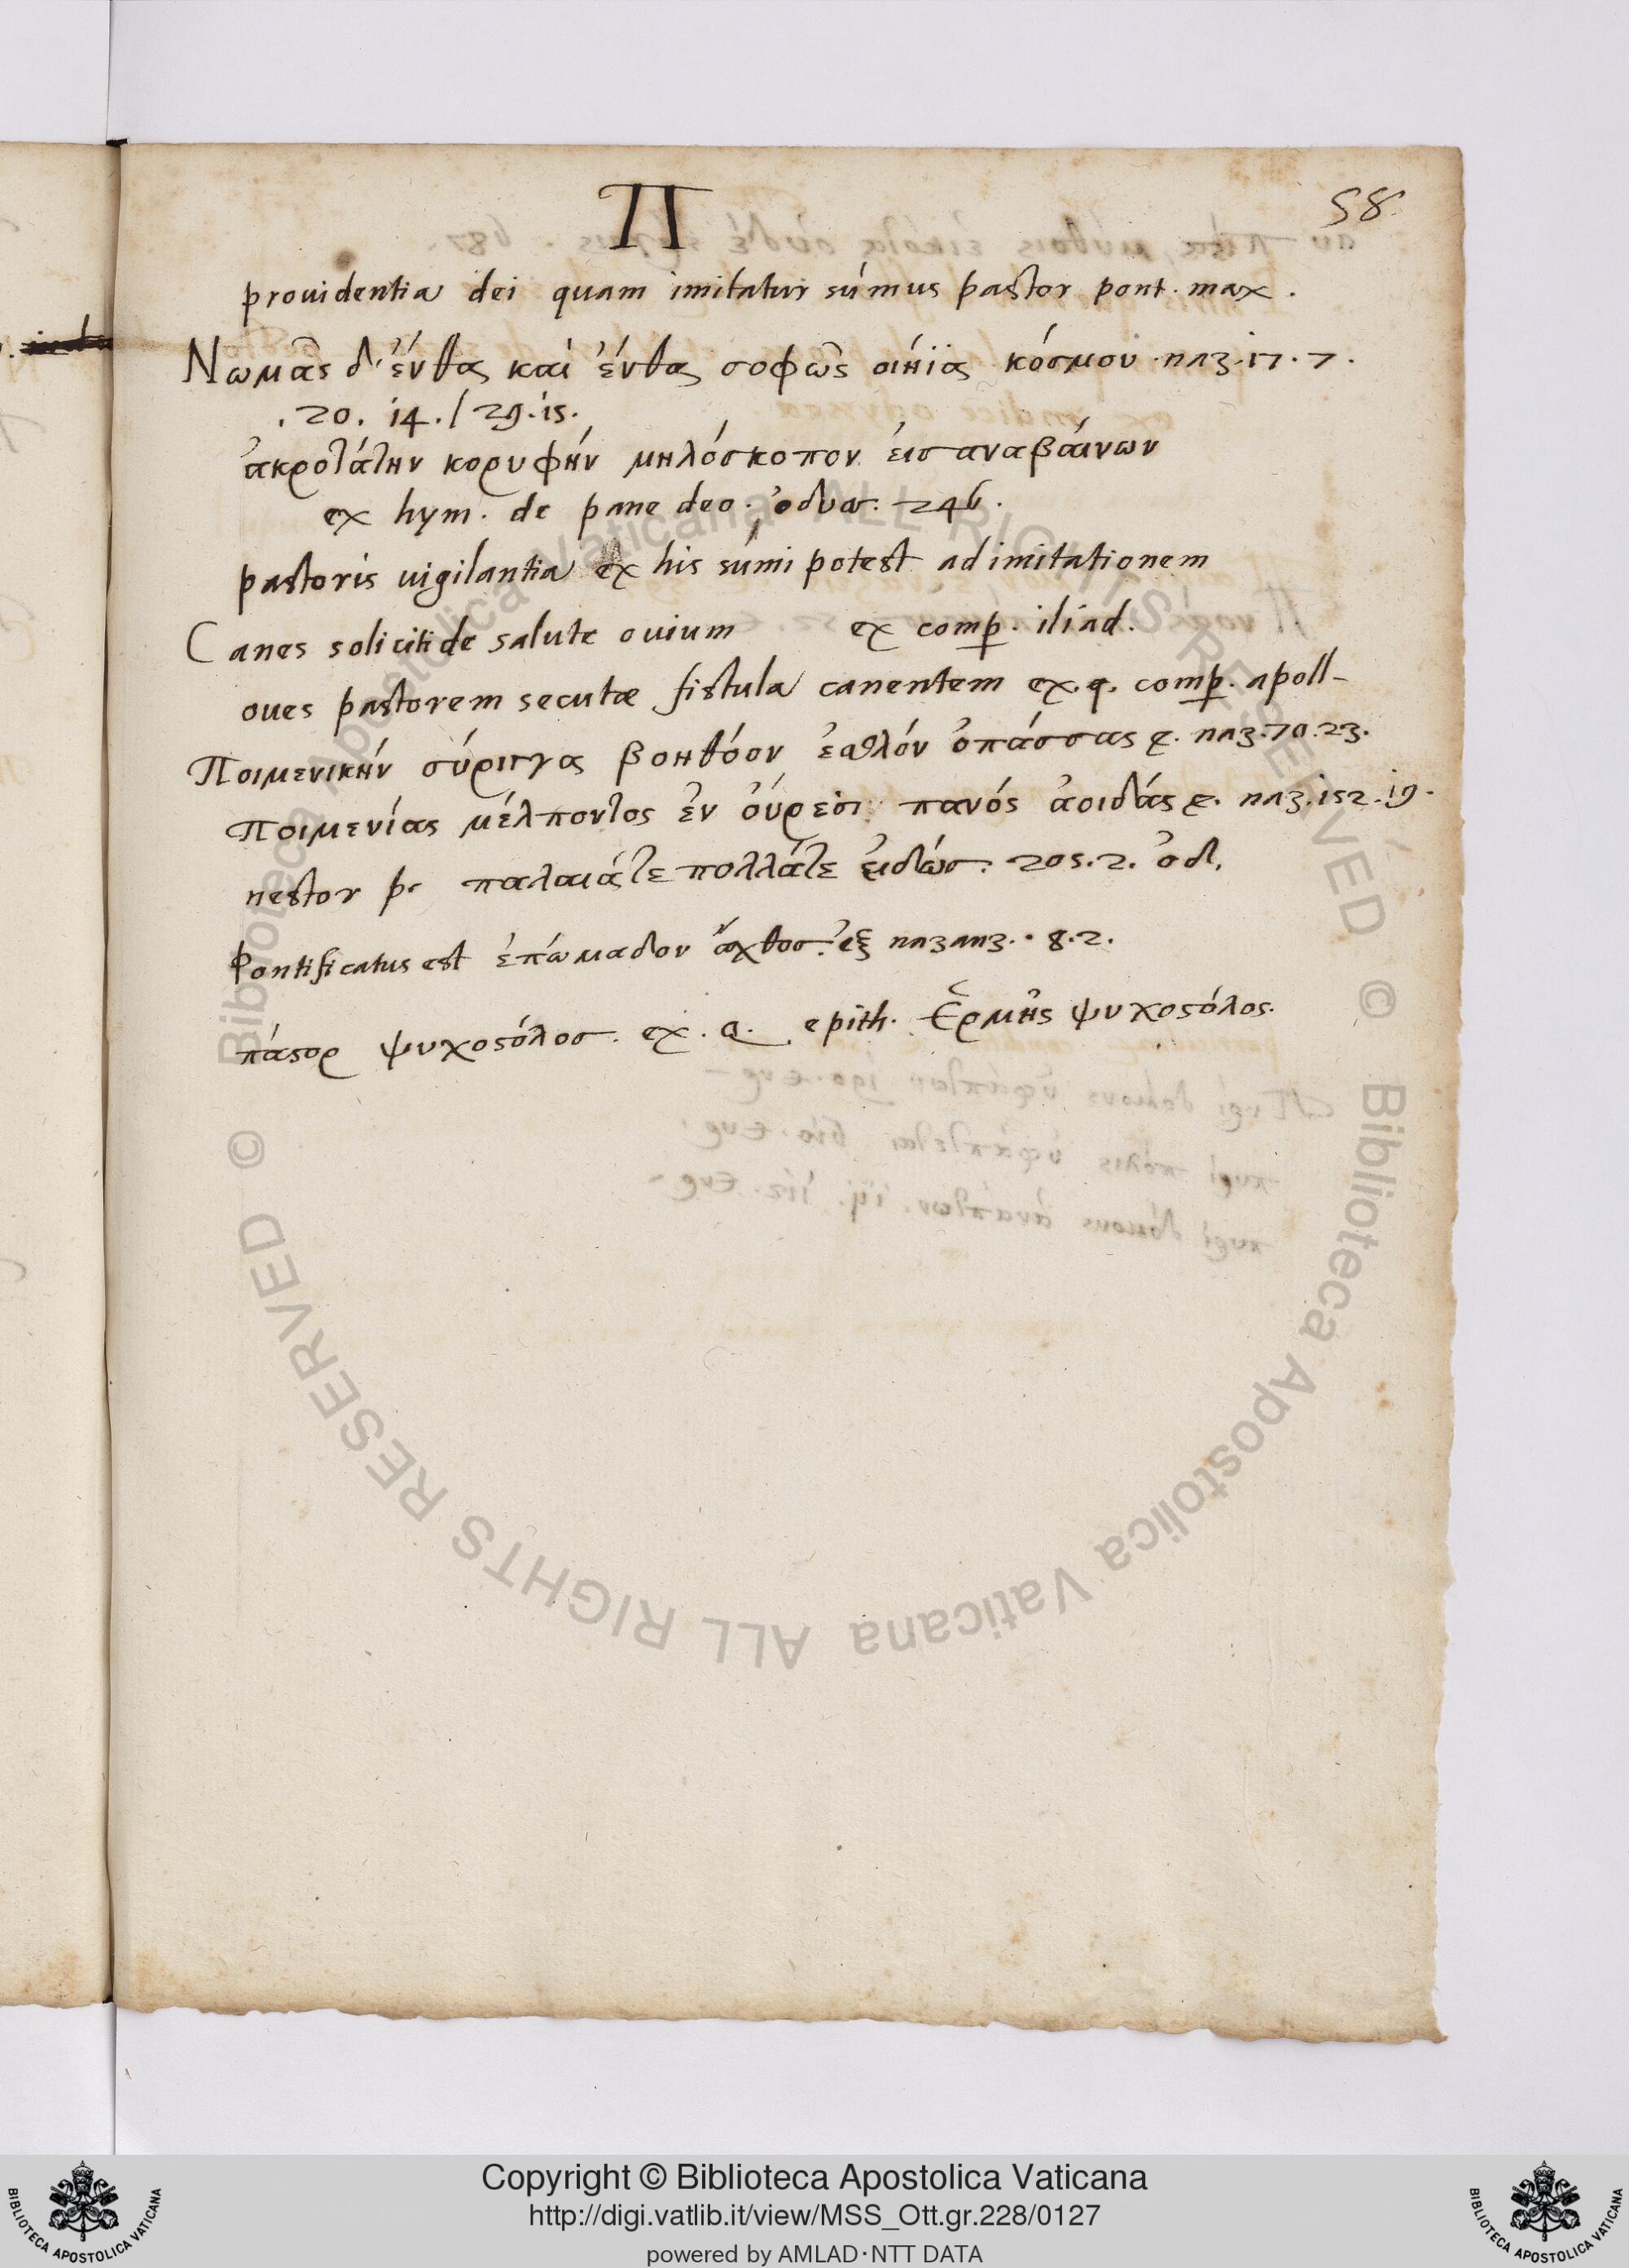 Π
58.
prouidentia dei quam imitatur súmus pastor pont. max.
Νωμᾶς δ' ἔνθα καὶ ἔνθα σοφῶς οἰήϊα κόσμου. naz. 17. 7.
. 20. 14. / 29. 15.
ἀκροτάτην κορυφήν μηλόσκοπον εἰσαναβαίνων
ex hym. de pane deo. ὀδυσ. 246.
pastoris uigilantia ex his súmi potest ad imitationem
Canes soliciti de salute ouium ex comp. iliad.
oues pastorem secutæ fistula canentem ex. q. comp. apoll-
Ποιμενικήν σύριγγα βοηθόον ἐσθλόν ὀπάσσας naz. 70. 23.
Ποιμενίας μέλποντος ἐν οὔρεσι πανός ἀοιδάς naz. 152. 19.
nestor παλαιάτε πολλάτε εἰδώσ. 205. 2. ὀδ.
Pontificatus est ἐπώμαδον ἄχθοσ. ἐξ nazanz. . 8. 2.
πάστορ ψυχοστόλοσ. ex. q. epith. Ἑρμῆς ψυχοστόλος.
Copyright © Biblioteca Apostolica Vaticana
http://digi.vatlib.it/view/MSS_Ott.gr.228/0127
powered by AMLAD·NTT DATA
BIBLIOTECA APOSTOLICA VATICANA
BIBLIOTECA APOSTOLICA VATICANA
© Biblioteca Apostolica Vaticana ALL RIGHTS RESERVED
© Biblioteca Apostolica Vaticana ALL RIGHTS RESERVED